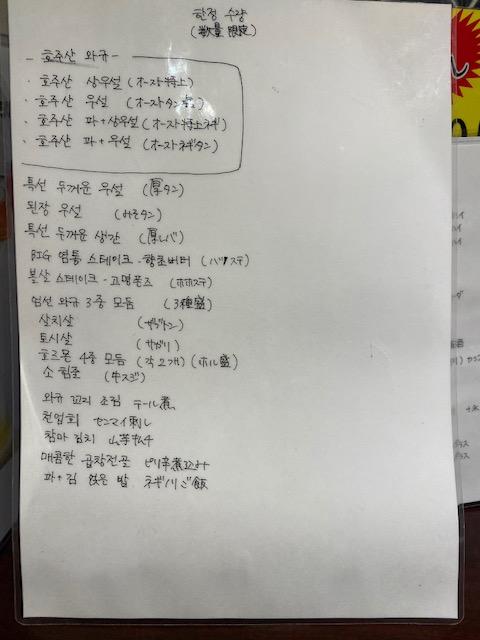 한정 수량
(数量 限定)
- 호주산 와규 -
· 호주산 상우설 (オースト特上)
· 호주산 우설 (オーストタン)
· 호주산 파+상우설 (オースト特上ネギ)
· 호주산 파+우설 (オーストネギタン)
특선 두꺼운 우설 (厚タン)
된장 우설 (みそタン)
특선 두꺼운 생간 (厚レバ)
BIG 염통 스테이크 - 향초버터 (ハツステ)
볼살 스테이크 - 고명폰즈 (ホホステ)
엄선 와규 3종 모둠 (3種盛)
살치살 (ザブトン)
토시살 (サガリ)
호르몬 4종 모둠 (각 2개) (ホル盛)
소 힘줄 (牛スジ)
와규 꼬리 조림 テール煮
천엽회 センマイ刺し
참마 김치 山芋キムチ
매콤한 곱창전골 ピリ辛煮込み
파+김 얹은 밥 ネギノリご飯